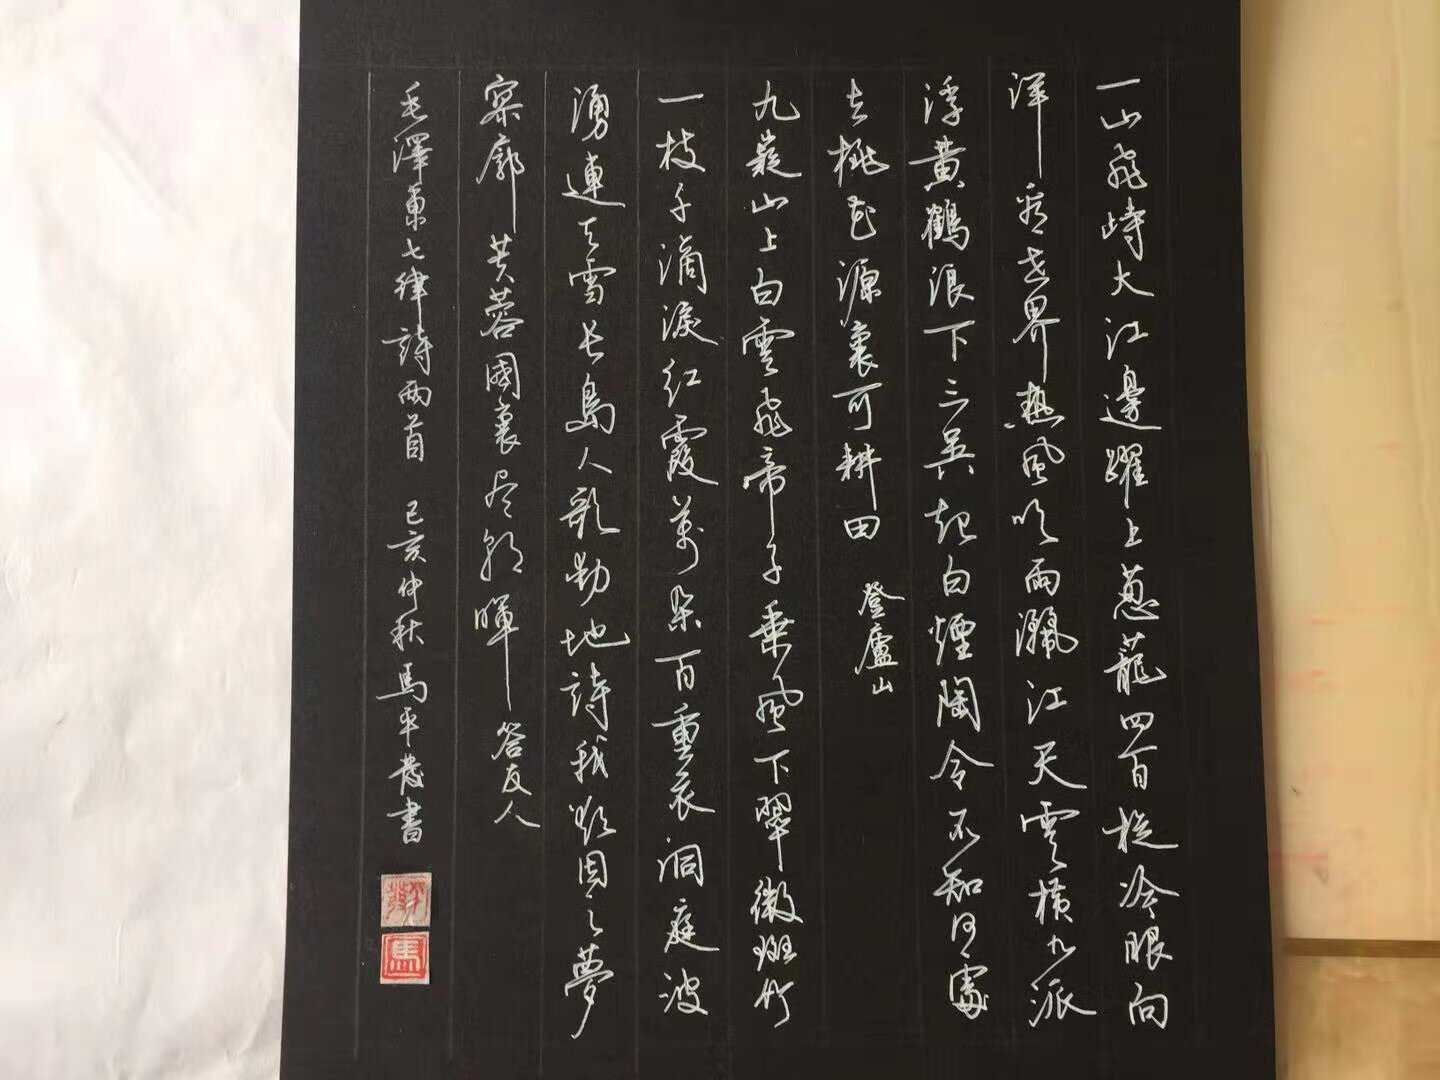 一山飛峙大江邊躍上蔥蘢四百旋冷眼向
洋看世界熱風吹雨灑江天雲橫九派
浮黃鶴浪下三吳起白煙陶令不知何處
去桃花源裏可耕田
登廬山
九嶷山上白雲飛帝子乘風下翠微斑竹
一枝千滴淚紅霞萬朵百重衣洞庭波
湧連天雪長島人歌動地詩我欲因之夢
寥廓芙蓉國裏盡朝暉
答友人
毛澤東七律詩兩首 己亥仲秋馬平發書
馬